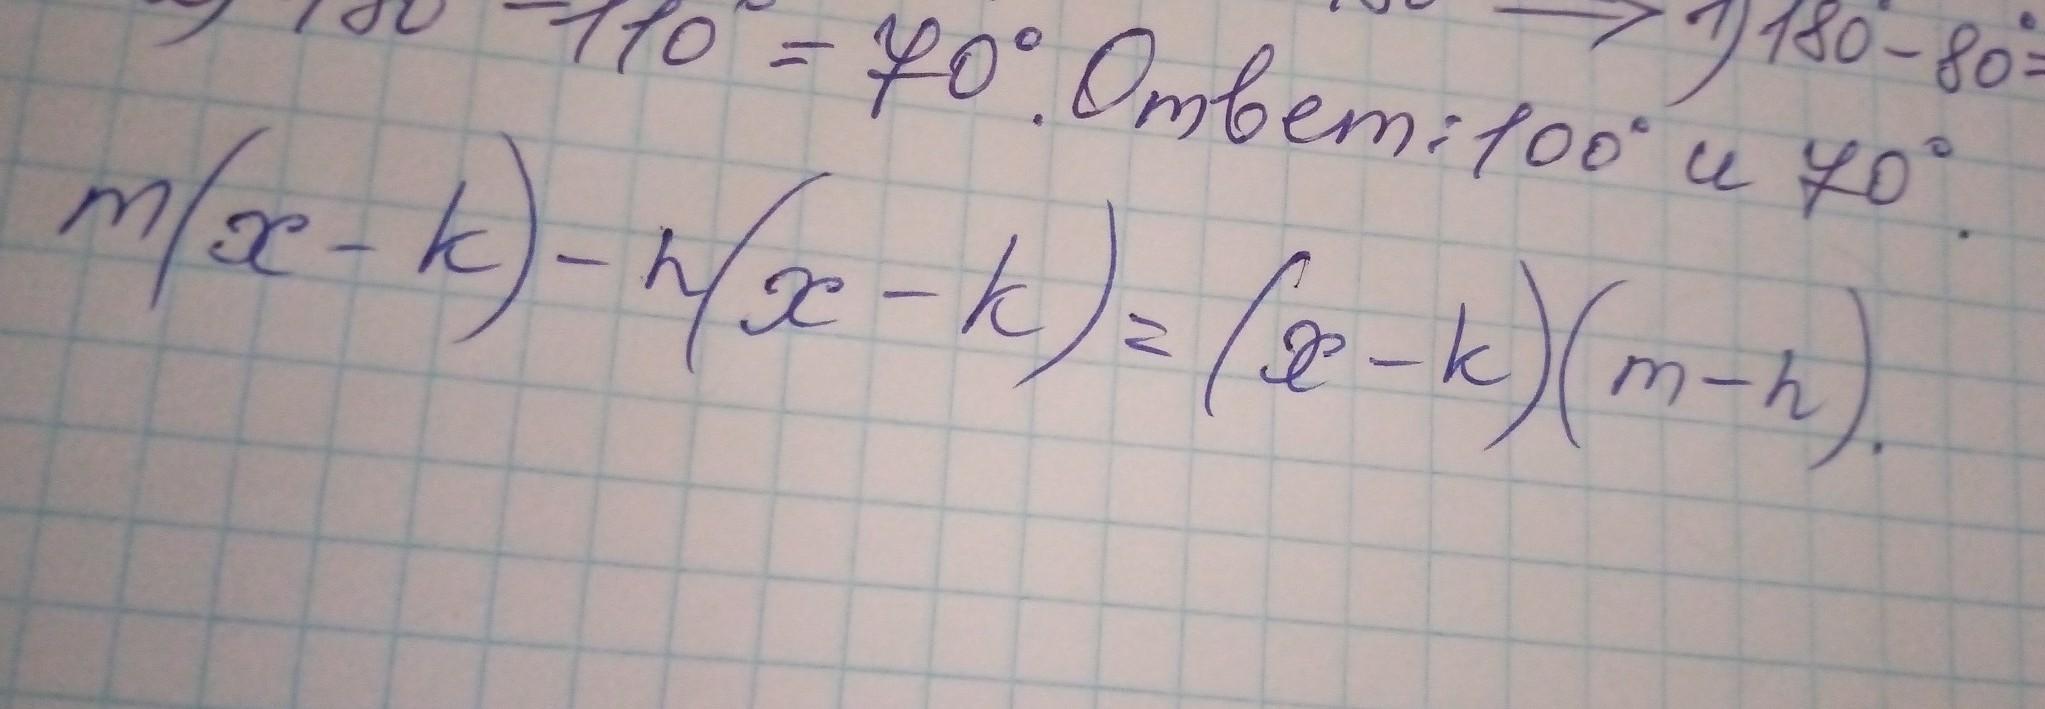 180° - 110° = 70°. Ответ: 100° и 70°.
⟶ 1) 180° - 80° =
m(x - k) - n(x - k) = (x - k)(m - n).